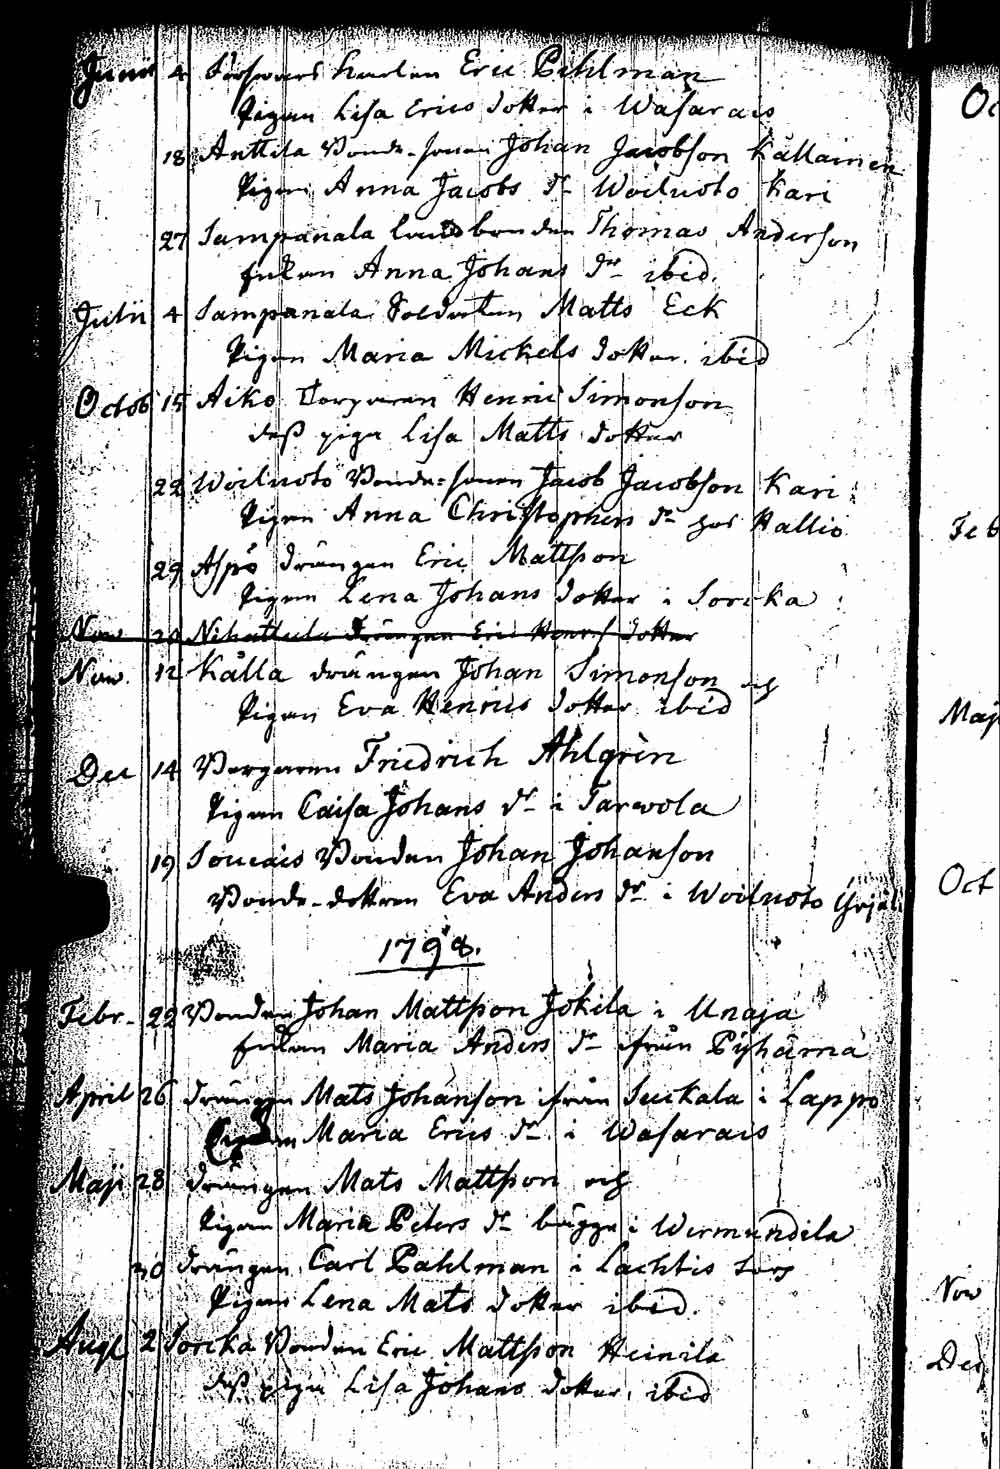 Junii 4 Försvars karlen Eric Pihlman
Pigan Lisa Erics dotter i Wasarais
18 Anttila Bonde-sonen Johan Jacobson Kållainen
Pigan Anna Jacobs dr Woiluoto Kari
27 Sampanala landbonden Thomas Anderson
Enkan Anna Johans dr ibid.
Julii 4 Sampanala Soldaten Matts Eck
Pigan Maria Mickels dotter ibid
Octob 15 Aiko Torparen Henric Simonson
dess piga Lisa Matts dotter
22 Woiluoto Bonde-sonen Jacob Jacobson Kari
Pigan Anna Christophers dr hos Kallio
29 Aspö drängen Eric Mattsson
Pigan Lena Johans dotter i Sorcka
Nov 20 Nihattula drängen Eric Henrs dotter
Nov. 12 Kålla drängen Johan Simonson och
Pigan Eva Henrics dotter ibid
Dec 14 Borgaren Friedrich Ahlgrèn
Pigan Caisa Johans dr i Tarwola
19 Soucais Bonden Johan Johanson
Bonde-dottren Eva Anders dr i Woiluoto Yrjäl
1798.
Febr. 22 Bonden Johan Mattsson Jokela i Unaja
Enkan Maria Anders dr ifrån Pyhämå
April 26 drängen Mats Johanson ifrån Suckala i Lappo
Pigan Maria Erics dr i Wasarais
Maji 28 drängen Mats Mattsson och
Pigan Maria Peters dr bägge i Wermundila
30 drängen Carl Pahlman i Lachtis
Pigan Lena Mats dotter ibid.
Augt 2 Sorcka Bonden Eric Mattsson Heinila
dess piga Lisa Johans dotter ibid
Oc
Feb
Maj
Oct
Nov
Dec